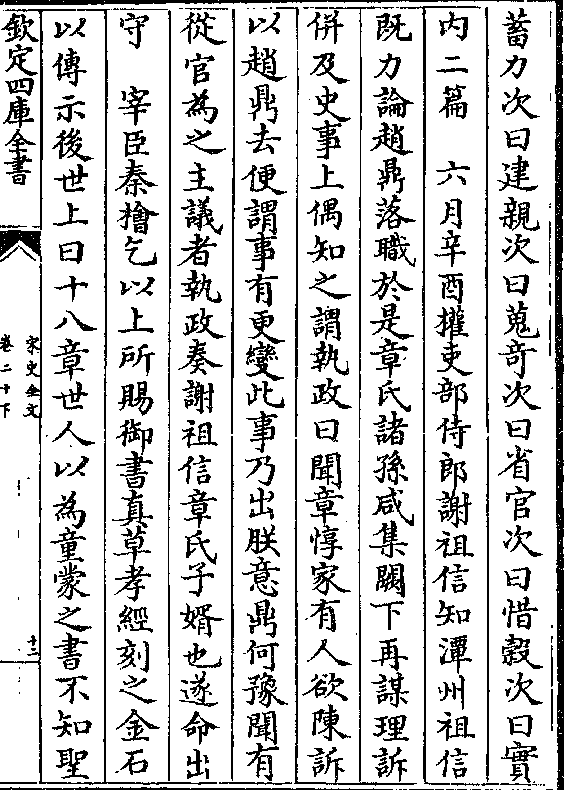 蓄力次曰建親次曰蒐奇次曰省官次曰惜穀次曰實
内二篇　六月辛酉權吏部侍郎謝祖信知潭州祖信
既力論趙鼎落職於是章氏諸孫咸集闕下再謀理訴
併及史事上偶知之謂執政曰聞章惇家有人欲陳訴
以趙鼎去便謂事有更變此事乃出朕意鼎何豫聞有
從官為之主議者執政奏謝祖信章氏子婿也遂命出
守　宰臣秦檜乞以上所賜御書真草孝經刻之金石
以傳示後世上曰十八章世人以為童蒙之書不知聖
欽定四庫全書
宋史全文
卷二十下
十二